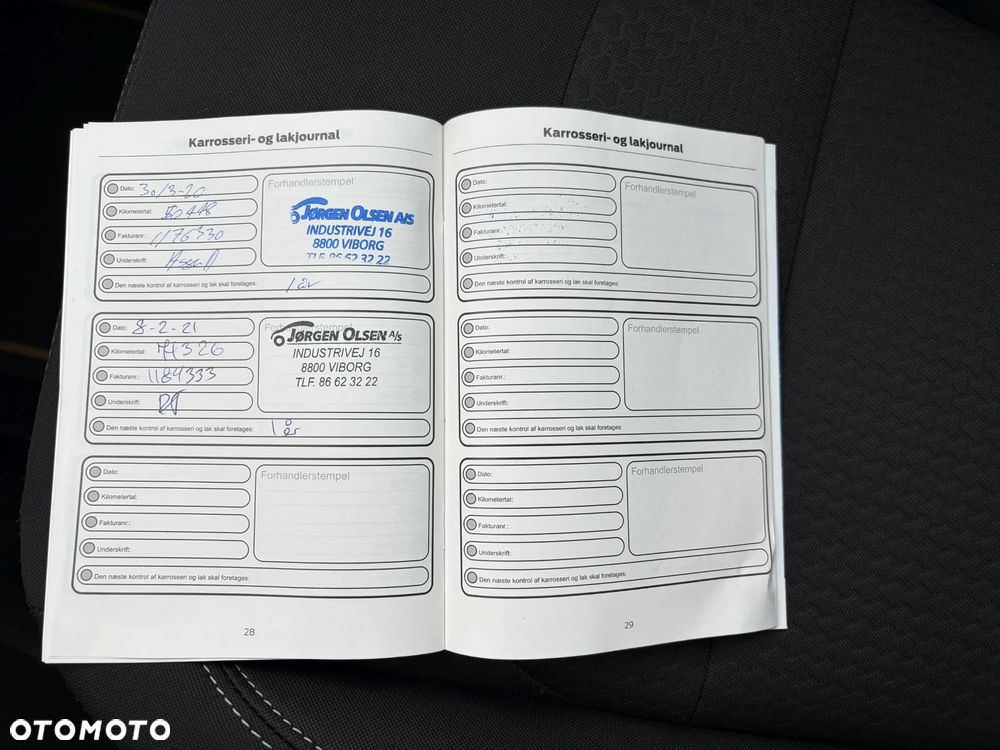 Karrosseri- og lakjournal
Dato: 30/3-20
Forhandlerstempel
Kilometertal: 50448
JØRGEN OLSEN A/S
INDUSTRIVEJ 16
8800 VIBORG
TLF. 86 62 32 22
Fakturanr.: 1176330
Underskrift:
Den næste kontrol af karrosseri og lak skal foretages: 1 år
Dato: 8-2-21
Forhandlerstempel
JØRGEN OLSEN A/S
INDUSTRIVEJ 16
8800 VIBORG
TLF. 86 62 32 22
Kilometertal: 74326
Fakturanr.: 1184333
Underskrift:
Den næste kontrol af karrosseri og lak skal foretages: 1 år
Dato:
Forhandlerstempel
Kilometertal:
Fakturanr.:
Underskrift:
Den næste kontrol af karrosseri og lak skal foretages:
28
Karrosseri- og lakjournal
Dato:
Forhandlerstempel
Kilometertal:
Fakturanr.:
Underskrift:
Den næste kontrol af karrosseri og lak skal foretages:
Dato:
Forhandlerstempel
Kilometertal:
Fakturanr.:
Underskrift:
Den næste kontrol af karrosseri og lak skal foretages:
Dato:
Forhandlerstempel
Kilometertal:
Fakturanr.:
Underskrift:
Den næste kontrol af karrosseri og lak skal foretages:
29
OTOMOTO